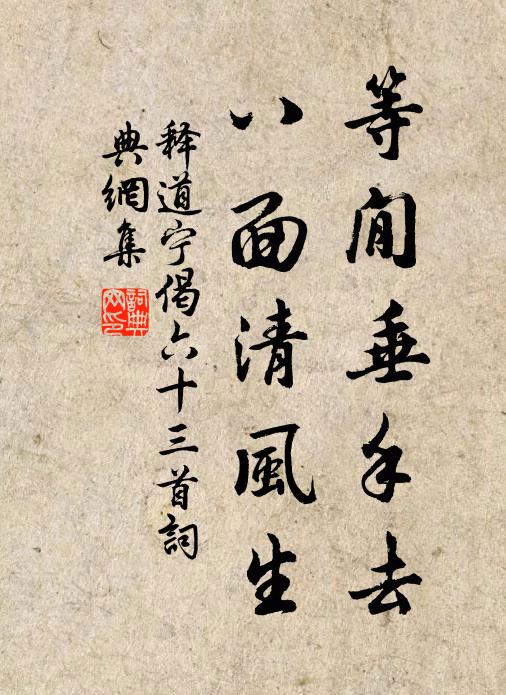 等閒垂手去
八面清風生
釋道宁偈六十三首詞
典網集
詞典
网印